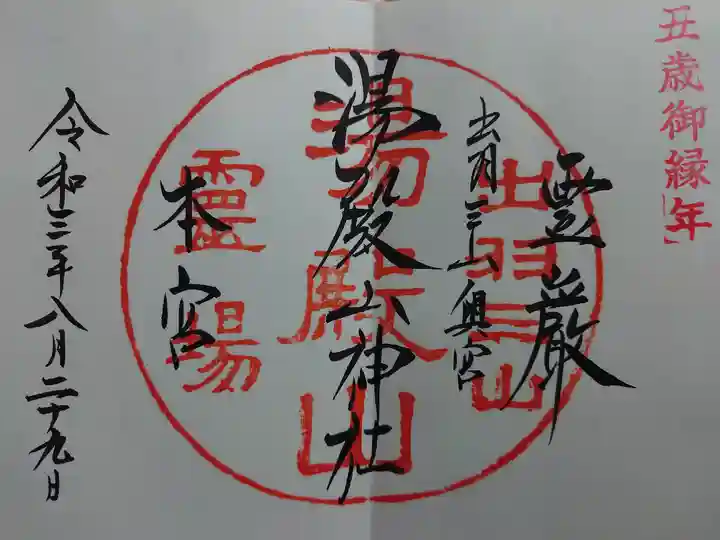 丑歳御縁年
霊巌
出羽三山奥宮
湯殿山神社
本宮
令和三年八月二十九日
出羽三山
湯殿山
靈場